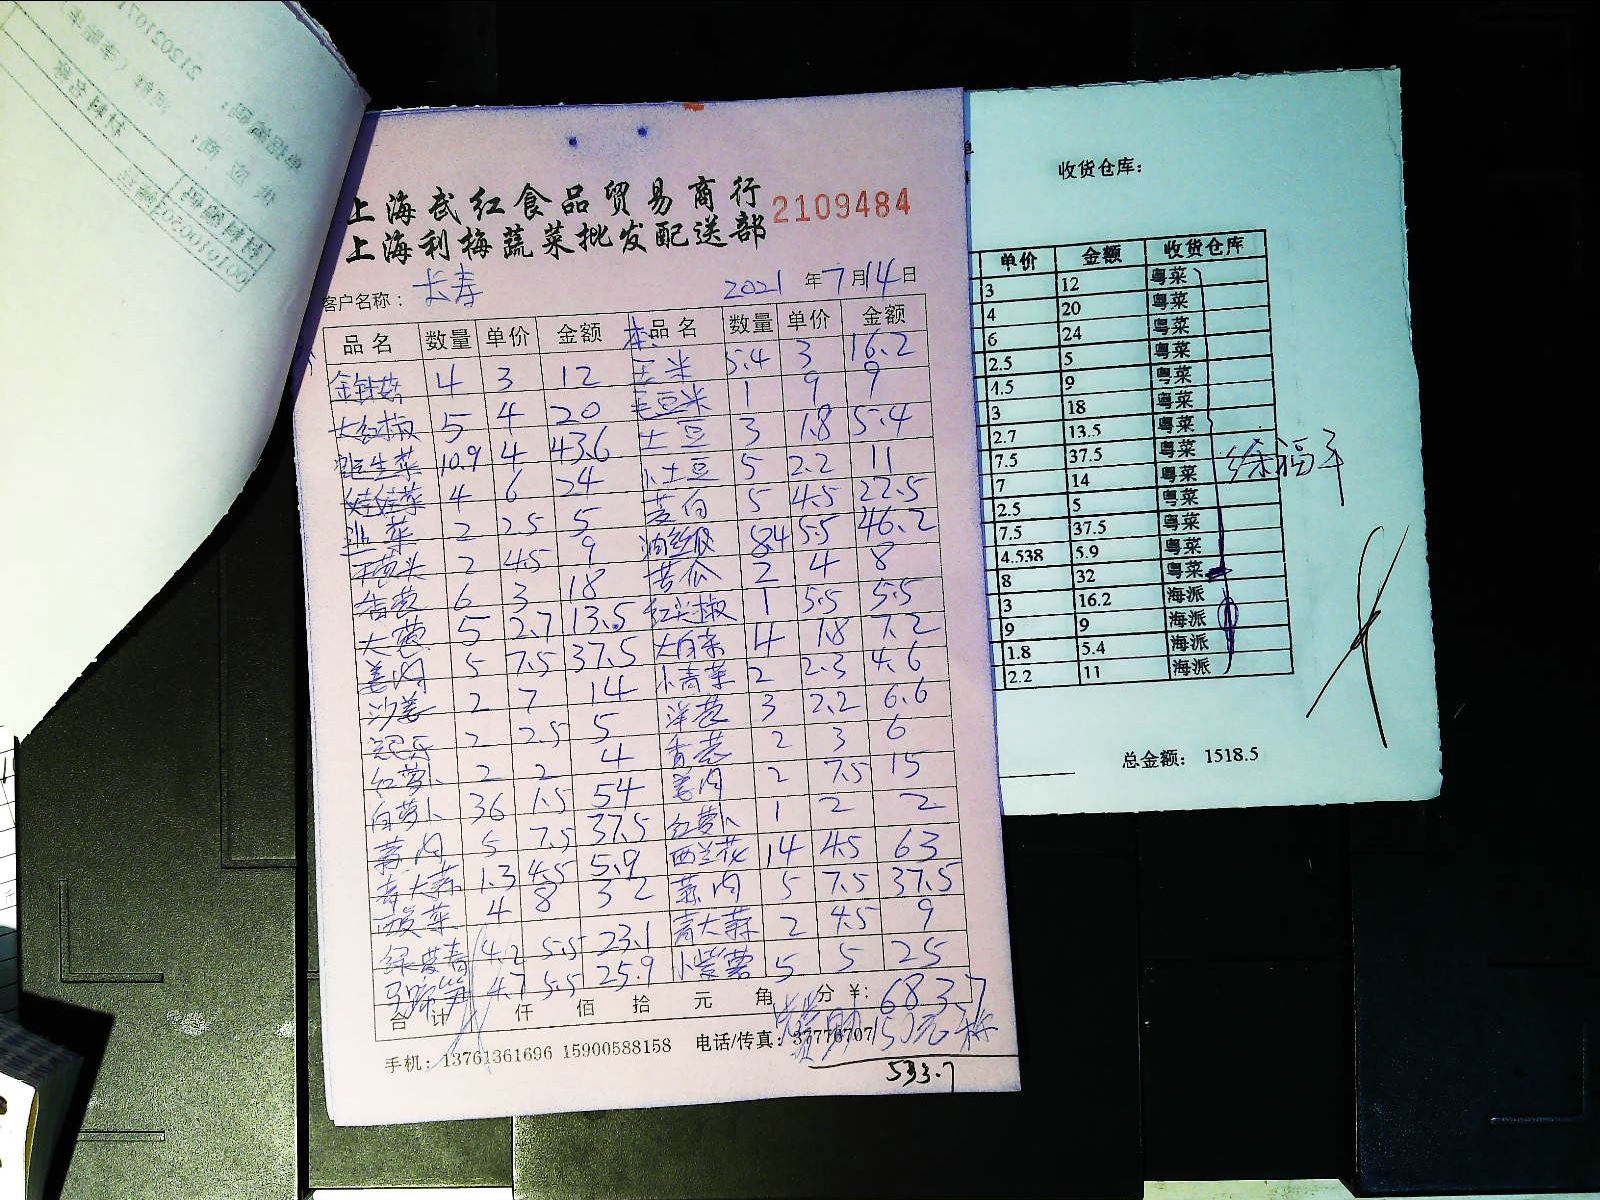 上海武红食品贸易商行
上海利梅蔬菜批发配送部
2109484
客户名称： 长寿 2021 年 7 月 14 日
品名 数量 单价 金额 品名 数量 单价 金额
金针菇 4 3 12 玉米 5.4 3 16.2
大红椒 5 4 20 毛豆米 1 9 9
生菜 10.9 4 43.6 土豆 3 1.8 5.4
娃娃菜 4 6 24 小土豆 5 2.2 11
韭菜 2 2.5 5 茭白 5 4.5 22.5
干葱头 2 4.5 9 油丝瓜 8.4 5.5 46.2
香葱 6 3 18 苦瓜 2 4 8
大葱 5 2.7 13.5 红尖椒 1 5.5 5.5
姜肉 5 7.5 37.5 大白菜 4 1.8 7.2
沙姜 2 7 14 小青菜 2 2.3 4.6
2 2.5 5 洋葱 3 2.2 6.6
红萝卜 2 2 4 香葱 2 3 6
白萝卜 36 1.5 54 姜肉 2 7.5 15
蒜肉 5 7.5 37.5 红萝卜 1 2 2
青大蒜 1.3 4.5 5.9 西兰花 14 4.5 63
菜 4 8 32 蒜肉 5 7.5 37.5
4.2 5.5 23.1 青大蒜 2 4.5 9
4.7 5.5 25.9 小紫薯 5 5 25
合计 仟 佰 拾 元 角 分 ¥: 683.7
手机：13761361696 15900588158 电话/传真：37776707
533.7
收货仓库：
单价 金额 收货仓库
3 12 粤菜
4 20 粤菜
6 24 粤菜
2.5 5 粤菜
4.5 9 粤菜
3 18 粤菜
2.7 13.5 粤菜
7.5 37.5 粤菜
7 14 粤菜
2.5 5 粤菜
7.5 37.5 粤菜
4.538 5.9 粤菜
8 32 粤菜
3 16.2 海派
9 9 海派
1.8 5.4 海派
2.2 11 海派
总金额： 1518.5